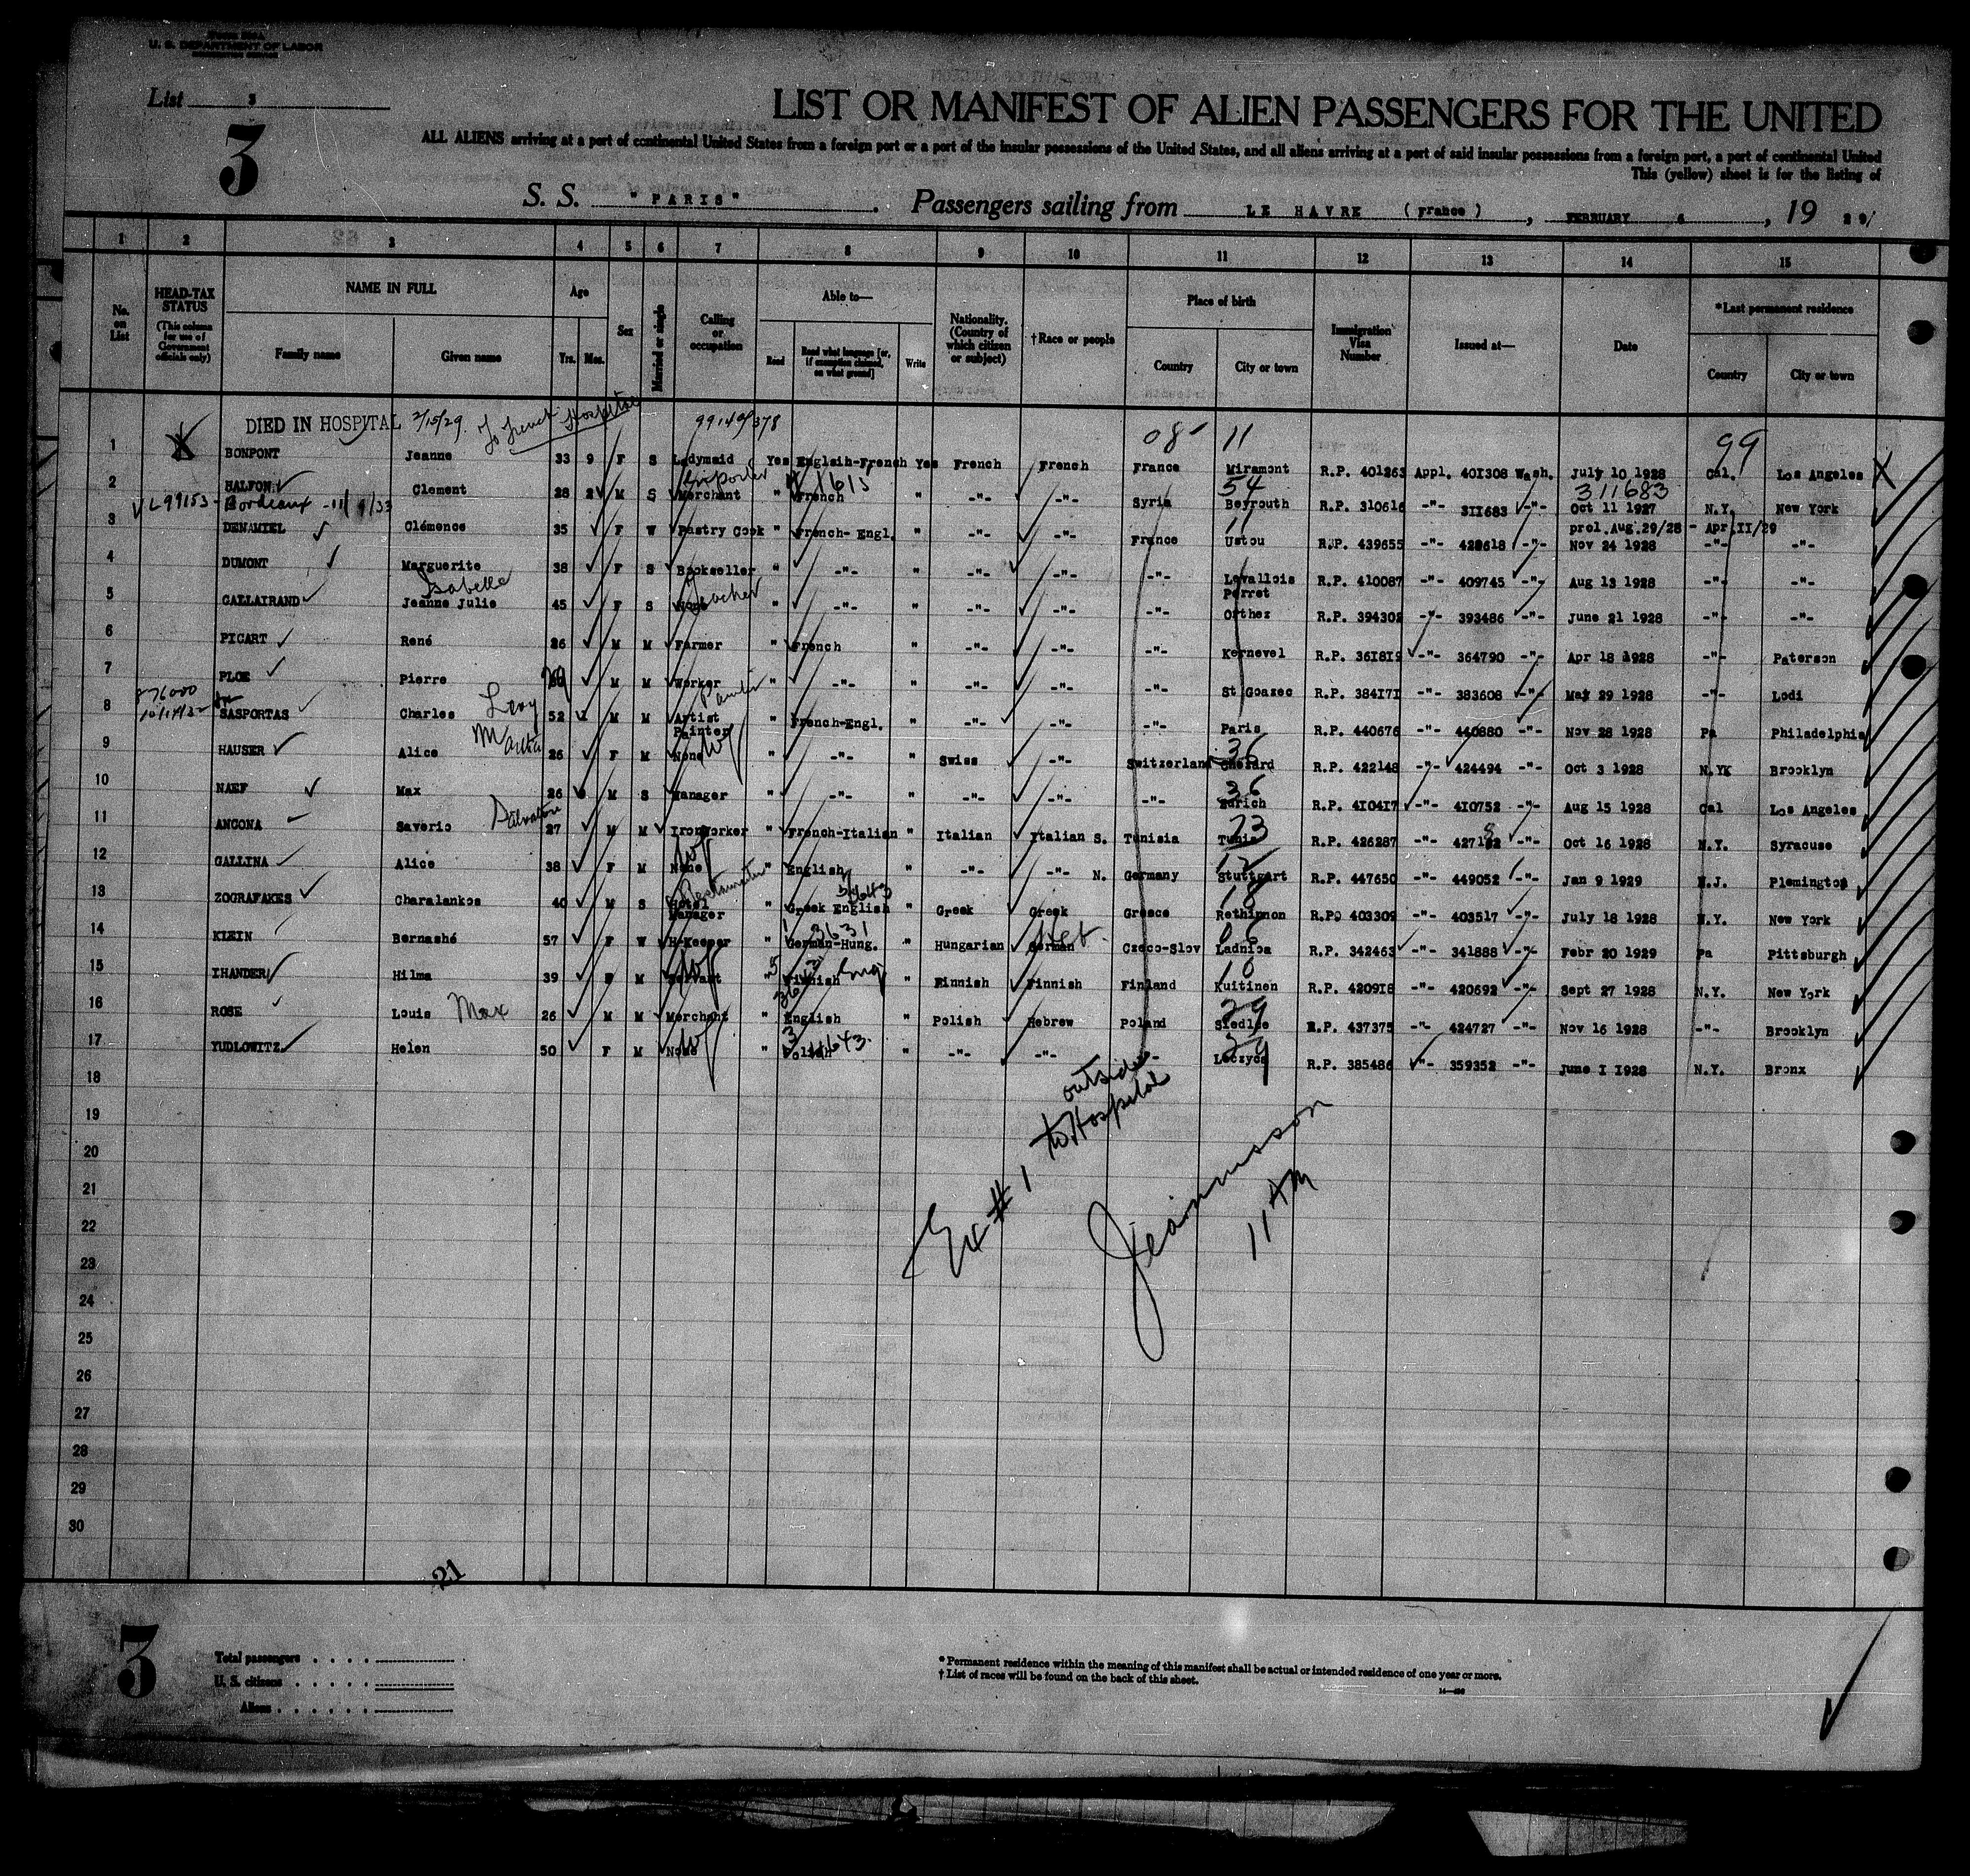 U. S. DEPARTMENT OF LABOR
List 3
3
LIST OR MANIFEST OF ALIEN PASSENGERS FOR THE UNITED
ALL ALIENS arriving at a port of continental United States from a foreign port or a port of the insular possessions of the United States, and all aliens arriving at a port of said insular possessions from a foreign port, a port of continental United
This (yellow) sheet is for the listing of
S. S. "PARIS". Passengers sailing from LE HAVRE (France), FEBRUARY 6, 19 29
1 2 3 4 5 6 7 8 9 10 11 12 13 14 15
No. on List
HEAD-TAX STATUS (This column for use of Government officials only)
NAME IN FULL
Family name Given name
Age Yrs. Mos.
Sex
Married or single
Calling or occupation
Able to—
Read Read what language [or, if exemption claimed, on what ground] Write
Nationality. (Country of which citizen or subject)
†Race or people
Place of birth
Country City or town
Immigration Visa Number
Issued at—
Date
*Last permanent residence
Country City or town
DIED IN HOSPITAL 2/15/29. To French Hospital 99 08 11 99
1 BONPONT Jeanne 33 9 F S Ladymaid Yes Englsih-French Yes French French France Miramont R.P. 401263 Appl. 401308 Wash. July 10 1928 Cal. Los Angeles
Importer 54 311683
2 HALFON Clement 28 M S Merchant " French " -"- -"- Syria Beyrouth R.P. 310616 -"- 311683 -"- Oct 11 1927 N.Y. New York
Bordeaux 11 prol.Aug.29/28 - Apr.II/29
3 DENAMIEL Clémence 35 F W Pastry Cook " French- Engl. " -"- -"- France Ustou R.P. 439655 -"- 428618 -"- Nov 24 1928 -"- -"-
4 DUMONT Marguerite 38 F S Bookseller " -"- " -"- -"- -"- Levallois Perret R.P. 410087 -"- 409745 -"- Aug 13 1928 -"- -"-
Isabelle Teacher
5 GALLAIRAND Jeanne Julie 45 F S None " -"- " -"- -"- -"- Orthez R.P. 394302 -"- 393486 -"- June 21 1928 -"- -"-
6 PICART René 26 M M Farmer " French " -"- -"- -"- Kernevel R.P. 361819 -"- 364790 -"- Apr 18 1928 -"- Paterson
7 PLOE Pierre M M Worker " -"- " -"- -"- -"- St Goazec R.P. 384171 -"- 383608 -"- May 29 1928 -"- Lodi
Levy
8 SASPORTAS Charles 52 M M Artist Painter " French-Engl. " -"- -"- -"- Paris R.P. 440676 -"- 440880 -"- Nov 28 1928 Pa Philadelphia
Martha wf 36
9 HAUSER Alice 26 F M None " -"- " Swiss -"- Switzerland R.P. 422148 -"- 424494 -"- Oct 3 1928 Brooklyn
36
10 NAEF Max 26 M S Manager " -"- " -"- -"- -"- Zurich R.P. 410417 -"- 410752 -"- Aug 15 1928 Cal Los Angeles
Salvatore
11 ANCONA Saverio 27 M M Ironworker " French-Italian " Italian Italian S. Tunisia Tunis R.P. 426287 -"- -"- Oct 16 1928 N.Y. Syracuse
wf 12
12 GALLINA Alice 38 F M None " English " -"- -"- N. Germany Stuttgart R.P. 447650 -"- 449052 -"- Jan 9 1929 N.J. Plemington
18
13 ZOGRAFAKES Charalankos 40 M S Hotel Manager " Greek English " Greek Greek Greece Rethimnon R.PO 403309 -"- 403517 -"- July 18 1928 N.Y. New York
3631 Heb. 06
14 KLEIN Bernashé 57 F W H-Keeper " German-Hung. " Hungarian German Czeco-Slov Ladnioa R.P. 342463 -"- 341888 -"- Febr 20 1929 Pa Pittsburgh
wf Eng 10
15 IHANDER Hilma 39 F M Servant " Finnish " Finnish Finnish Finland Kuitinen R.P. 420918 -"- 420692 -"- Sept 27 1928 N.Y. New York
Max 29
16 ROSE Louis 26 M M Merchant " English " Polish Hebrew Poland Siedlce R.P. 437375 -"- 424727 -"- Nov 16 1928 -"- Brooklyn
wf 29
17 YUDLOWITZ Helen 50 F M None " Polish " -"- -"- -"- R.P. 385486 -"- 359352 -"- June 1 1928 N.Y. Bronx
18
19
20
21
22
23
24
25
26
27
28
29
30
outside
to Hospital
Ex # 1
11 AM
21
3
Total passengers
U. S. citizens
Aliens
* Permanent residence within the meaning of this manifest shall be actual or intended residence of one year or more.
† List of races will be found on the back of this sheet.